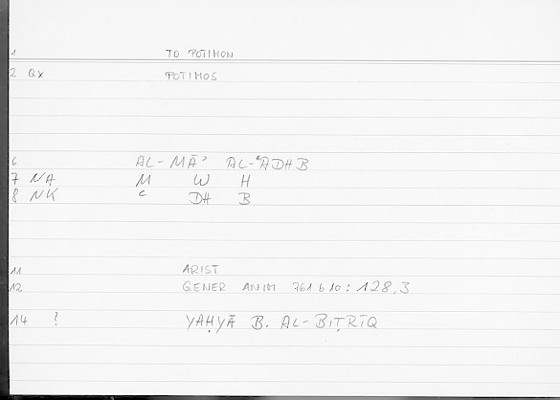 1 TO POTIMON
2 Qx POTIMOS
6 AL-MĀʾ AL-ʿADHB
7 NA M W H
8 NK ʿ DH B
11 ARIST
12 GENER ANIM 761 b 10: 128,3
14 ? YAḤYĀ B. AL-BIṬRĪQ